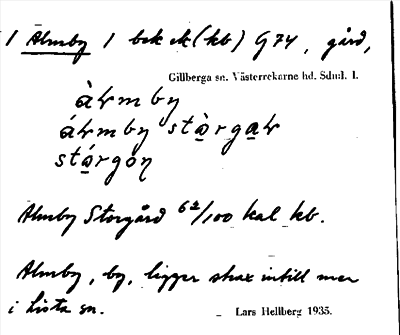 1 Almby 1 bek ek (kb) G74, gård,
Gillberga sn. Västerrekarne hd. Sdml. 1.
àɫmby
áɫmby stà̱rga̱ɫ
stá̱rgon
Almby Storgård 6 2/100 kal kb.
Almby, by, ligger strax intill men
i Lista sn.
Lars Hellberg 1935.